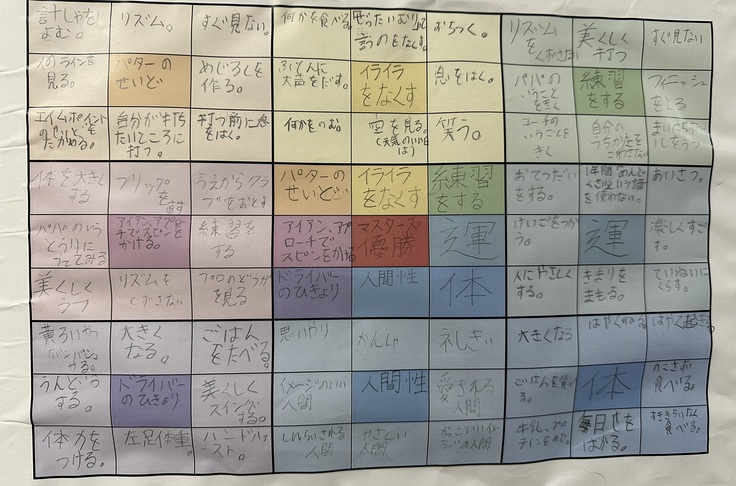 リズム。
すぐ見ない。
何かを食べる。
おちつく。
リズム
をくずさない
美しく
打つ
すぐ見ない
人のラインを
見る。
パターの
せいど
めじるしを
作る。
大声をだす。
イライラ
をなくす
息をはく。
パパの
いうこと
をきく
練習
をする
フィニッシュ
をとる
エイムポイント
のせいどを
たかめる。
自分が打ち
たいところに
打つ。
打つ前に息
をはく。
何かをのむ。
空を見る。
(天気のいい日
は)
笑う。
コーチの
いうことを
きく
自分の
体を大きく
する
グリップを
直す
うえからクラ
ブをおとす
パターの
せいど
イライラ
をなくす
練習
をする
おてつだい
をする。
1年間
を使わない。
あいさつ。
パパのいう
とうりに
アイアン、アプロー
チでスピンを
かける。
練習を
する
アイアン、アプ
ローチで
スピンをかける
マスターズ
優勝
運
けいごをつか
う。
運
楽しくすご
す。
美しく
うつ
リズムを
くずさない
プロのどうが
を見る
ドライバー
のひきょり
人間性
体
人にやさしく
する。
きまりを
まもる。
ていねいに
くらす。
大きく
なる。
ごはん
をたべる。
思いやり
かんしゃ
礼ぎ
大きくなる
はやくねる。
はやく起きる。
うんどう
する。
ドライバー
のひきょり
美しく
スイング
する。
イメージのいい
人間
人間性
愛される
人間
ごはんを食べ
る。
体
のこさず
食べる。
体力を
つける。
左足体重。
ハンドファ
ースト。
しんらいされる
人間
やさしい
人間
かっこいいイメ
ージの人間
牛乳、プロ
テインをのむ。
毎日せを
はかる。
すききらいなく
食べる。